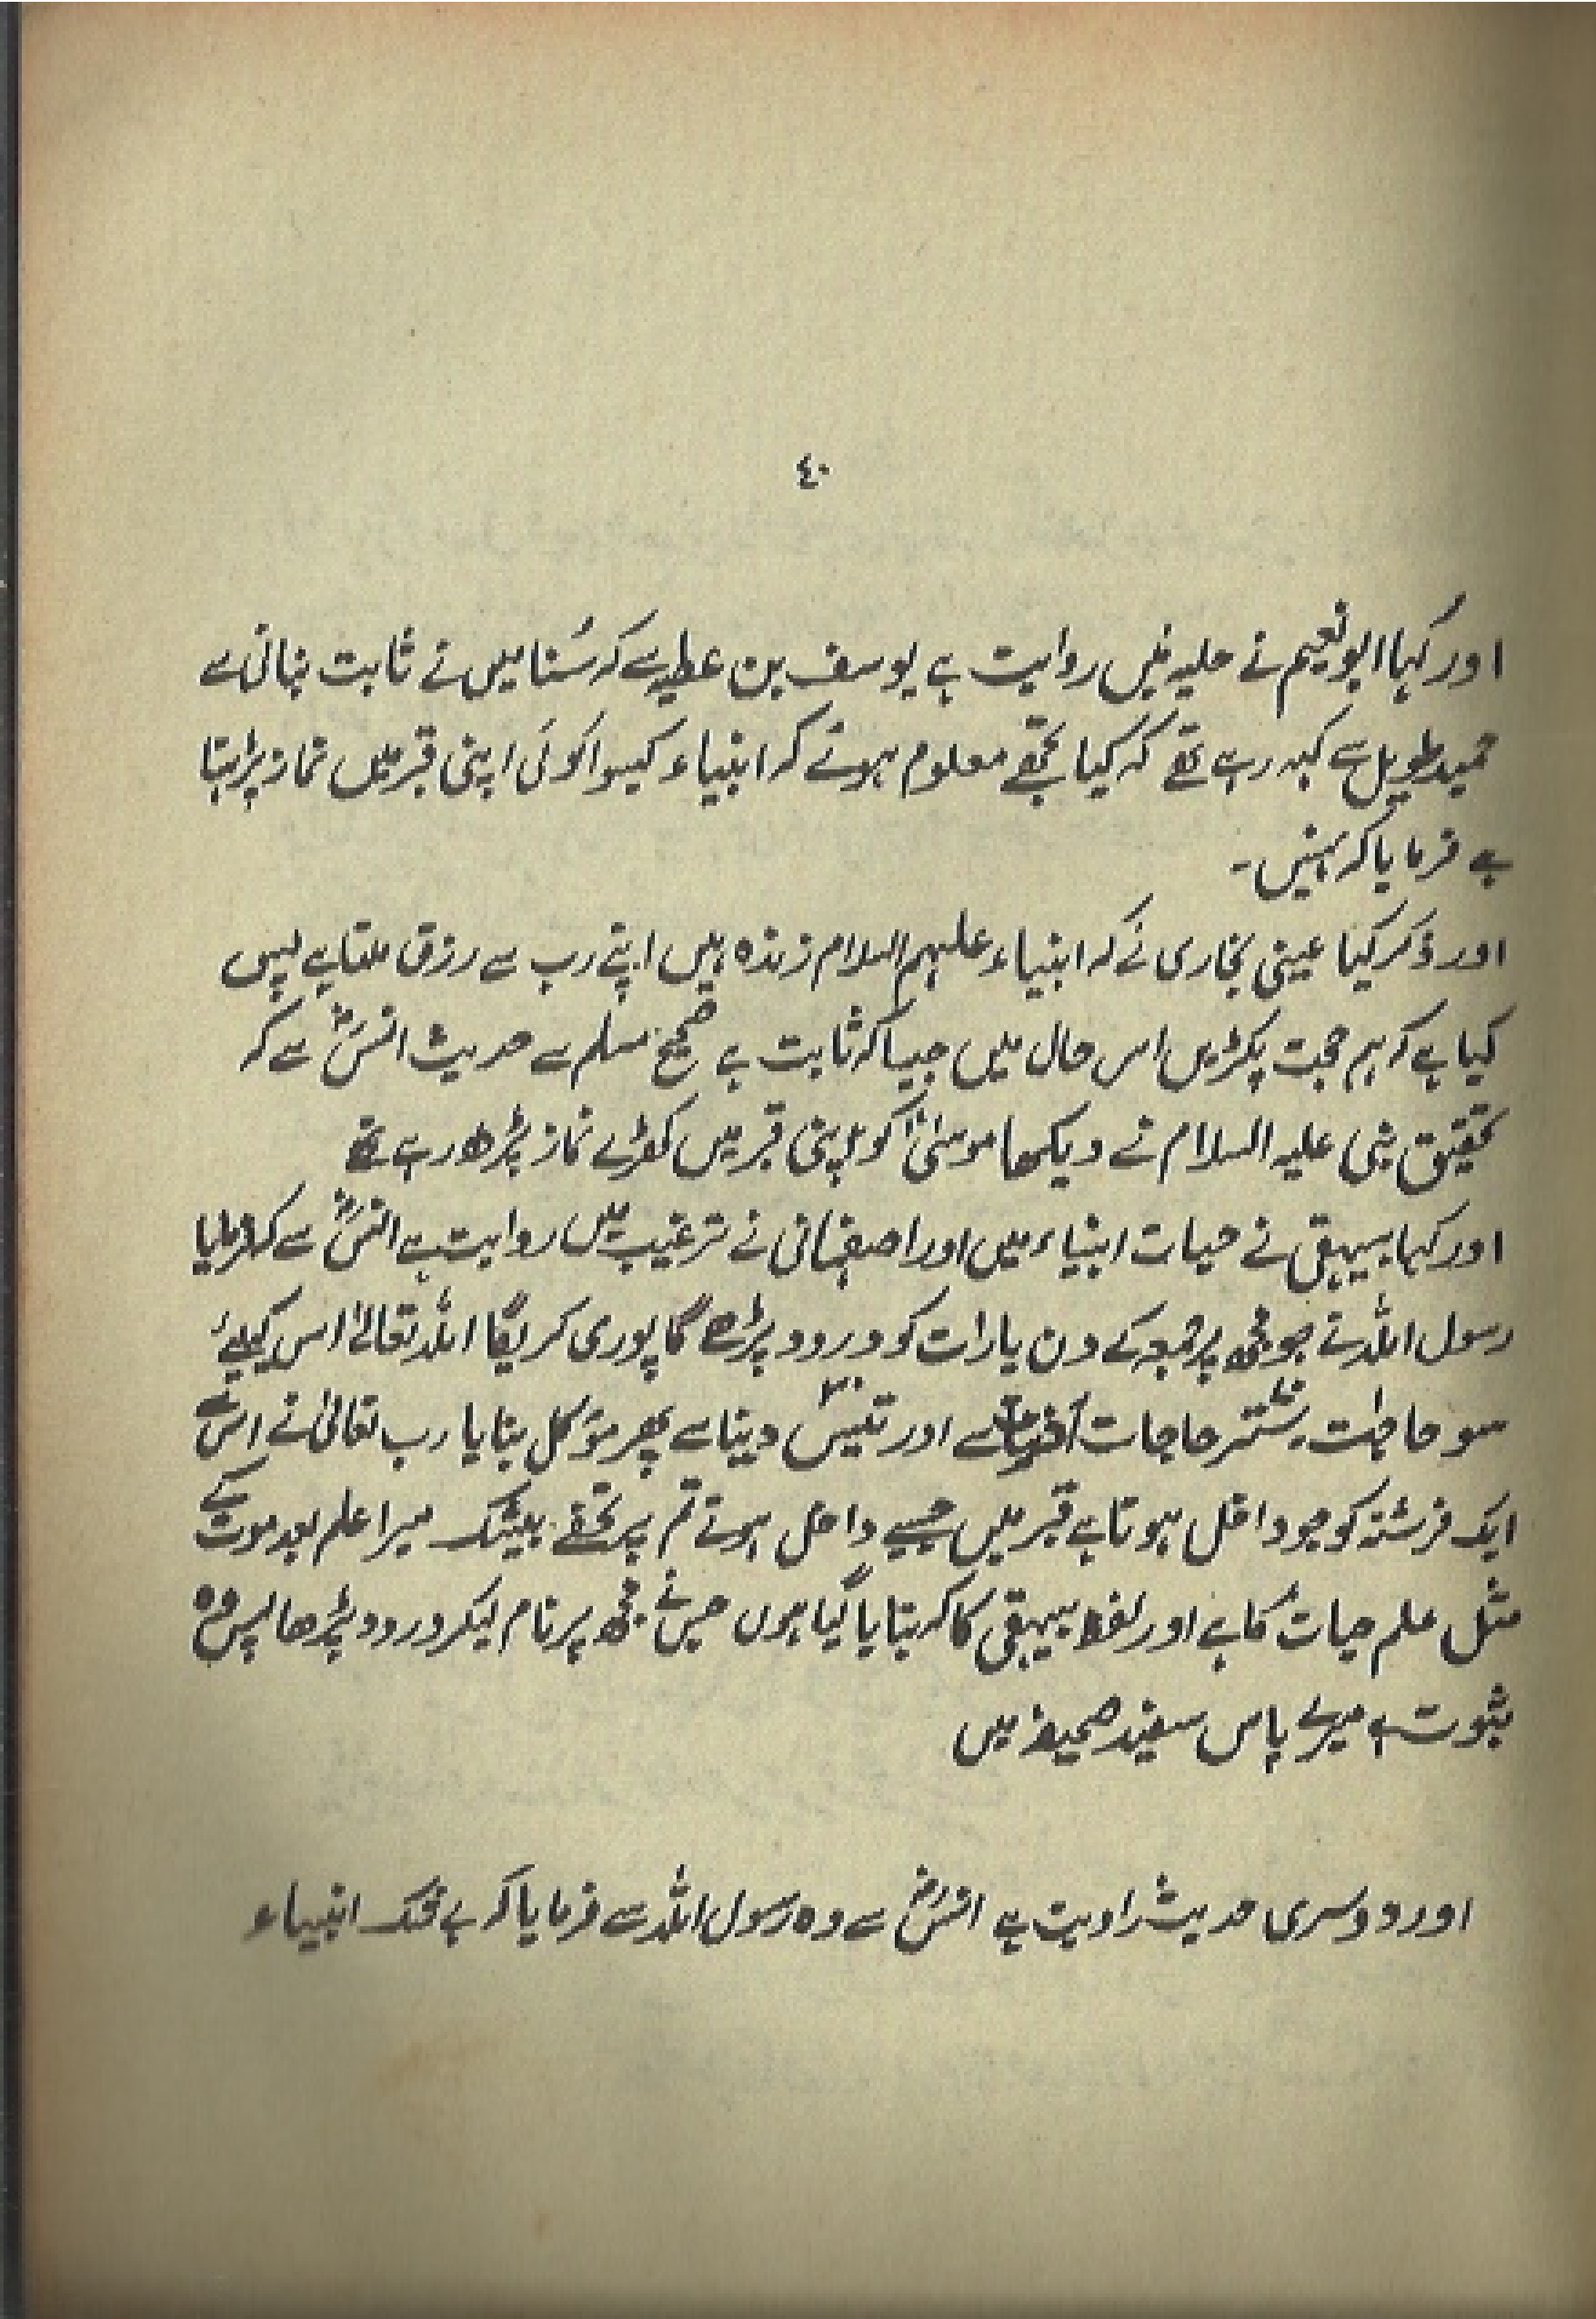 ٤٠
اور کہا ابو نعیم نے حلیہ میں روایت ہے یوسف بن عطیہ سے کہ سُنا میں نے ثابت بنانی سے
حمید طویل سے کہہ رہے تھے کہ کیا تجھے معلوم ہونے کہ انبیاء کیسوا کوئی اپنی قبر میں نماز پڑہتا
ہے فرمایا کہ نہیں۔
اور ذکر کیا عینی بخاری نے کہ انبیاء علیہم السلام زندہ ہیں اپنے رب سے رزق ملتا ہے پس
کیا ہے کہ ہم حجت پکڑیں اس حال میں جیسا کہ ثابت ہے صحیح مسلم سے حدیث انسؓ سے کہ
تحقیق نبی علیہ السلام نے دیکھا موسیٰؑ کو اپنی قبر میں کھڑے نماز پڑھ رہے تھے
اور کہا بیہقی نے حیات انبیاء میں اور اصفہانی نے ترغیب میں روایت ہے انسؓ سے کہ فرمایا
رسول اللہ نے جو مجھ پر جمعہ کے دن یا رات کو درود پڑھے گا پوری کریگا اللہ تعالیٰ اس کیلئے
سو حاجت ستر حاجات آخرت سے اور تیس ۳۰ دینا سے پھر مؤکل بنایا رب تعالیٰ نے اس کے
ایک فرشتہ کو جو داخل ہوتا ہے قبر میں جیسے داخل ہوتے تم پر تحفے بیشک میرا علم بعد موت کے
مثل علم حیات کا ہے اور لفظ بیہقی کا کہ بتایا گیا ہوں جس نے مجھ پر نام لیکر درود پڑھا پس وہ
ثبوت ہے میرے پاس سفید صحیفہ میں
اور دوسری حدیث راویت ہے انسؓ سے وہ رسول اللہ سے فرمایا کہ بے شک انبیاء